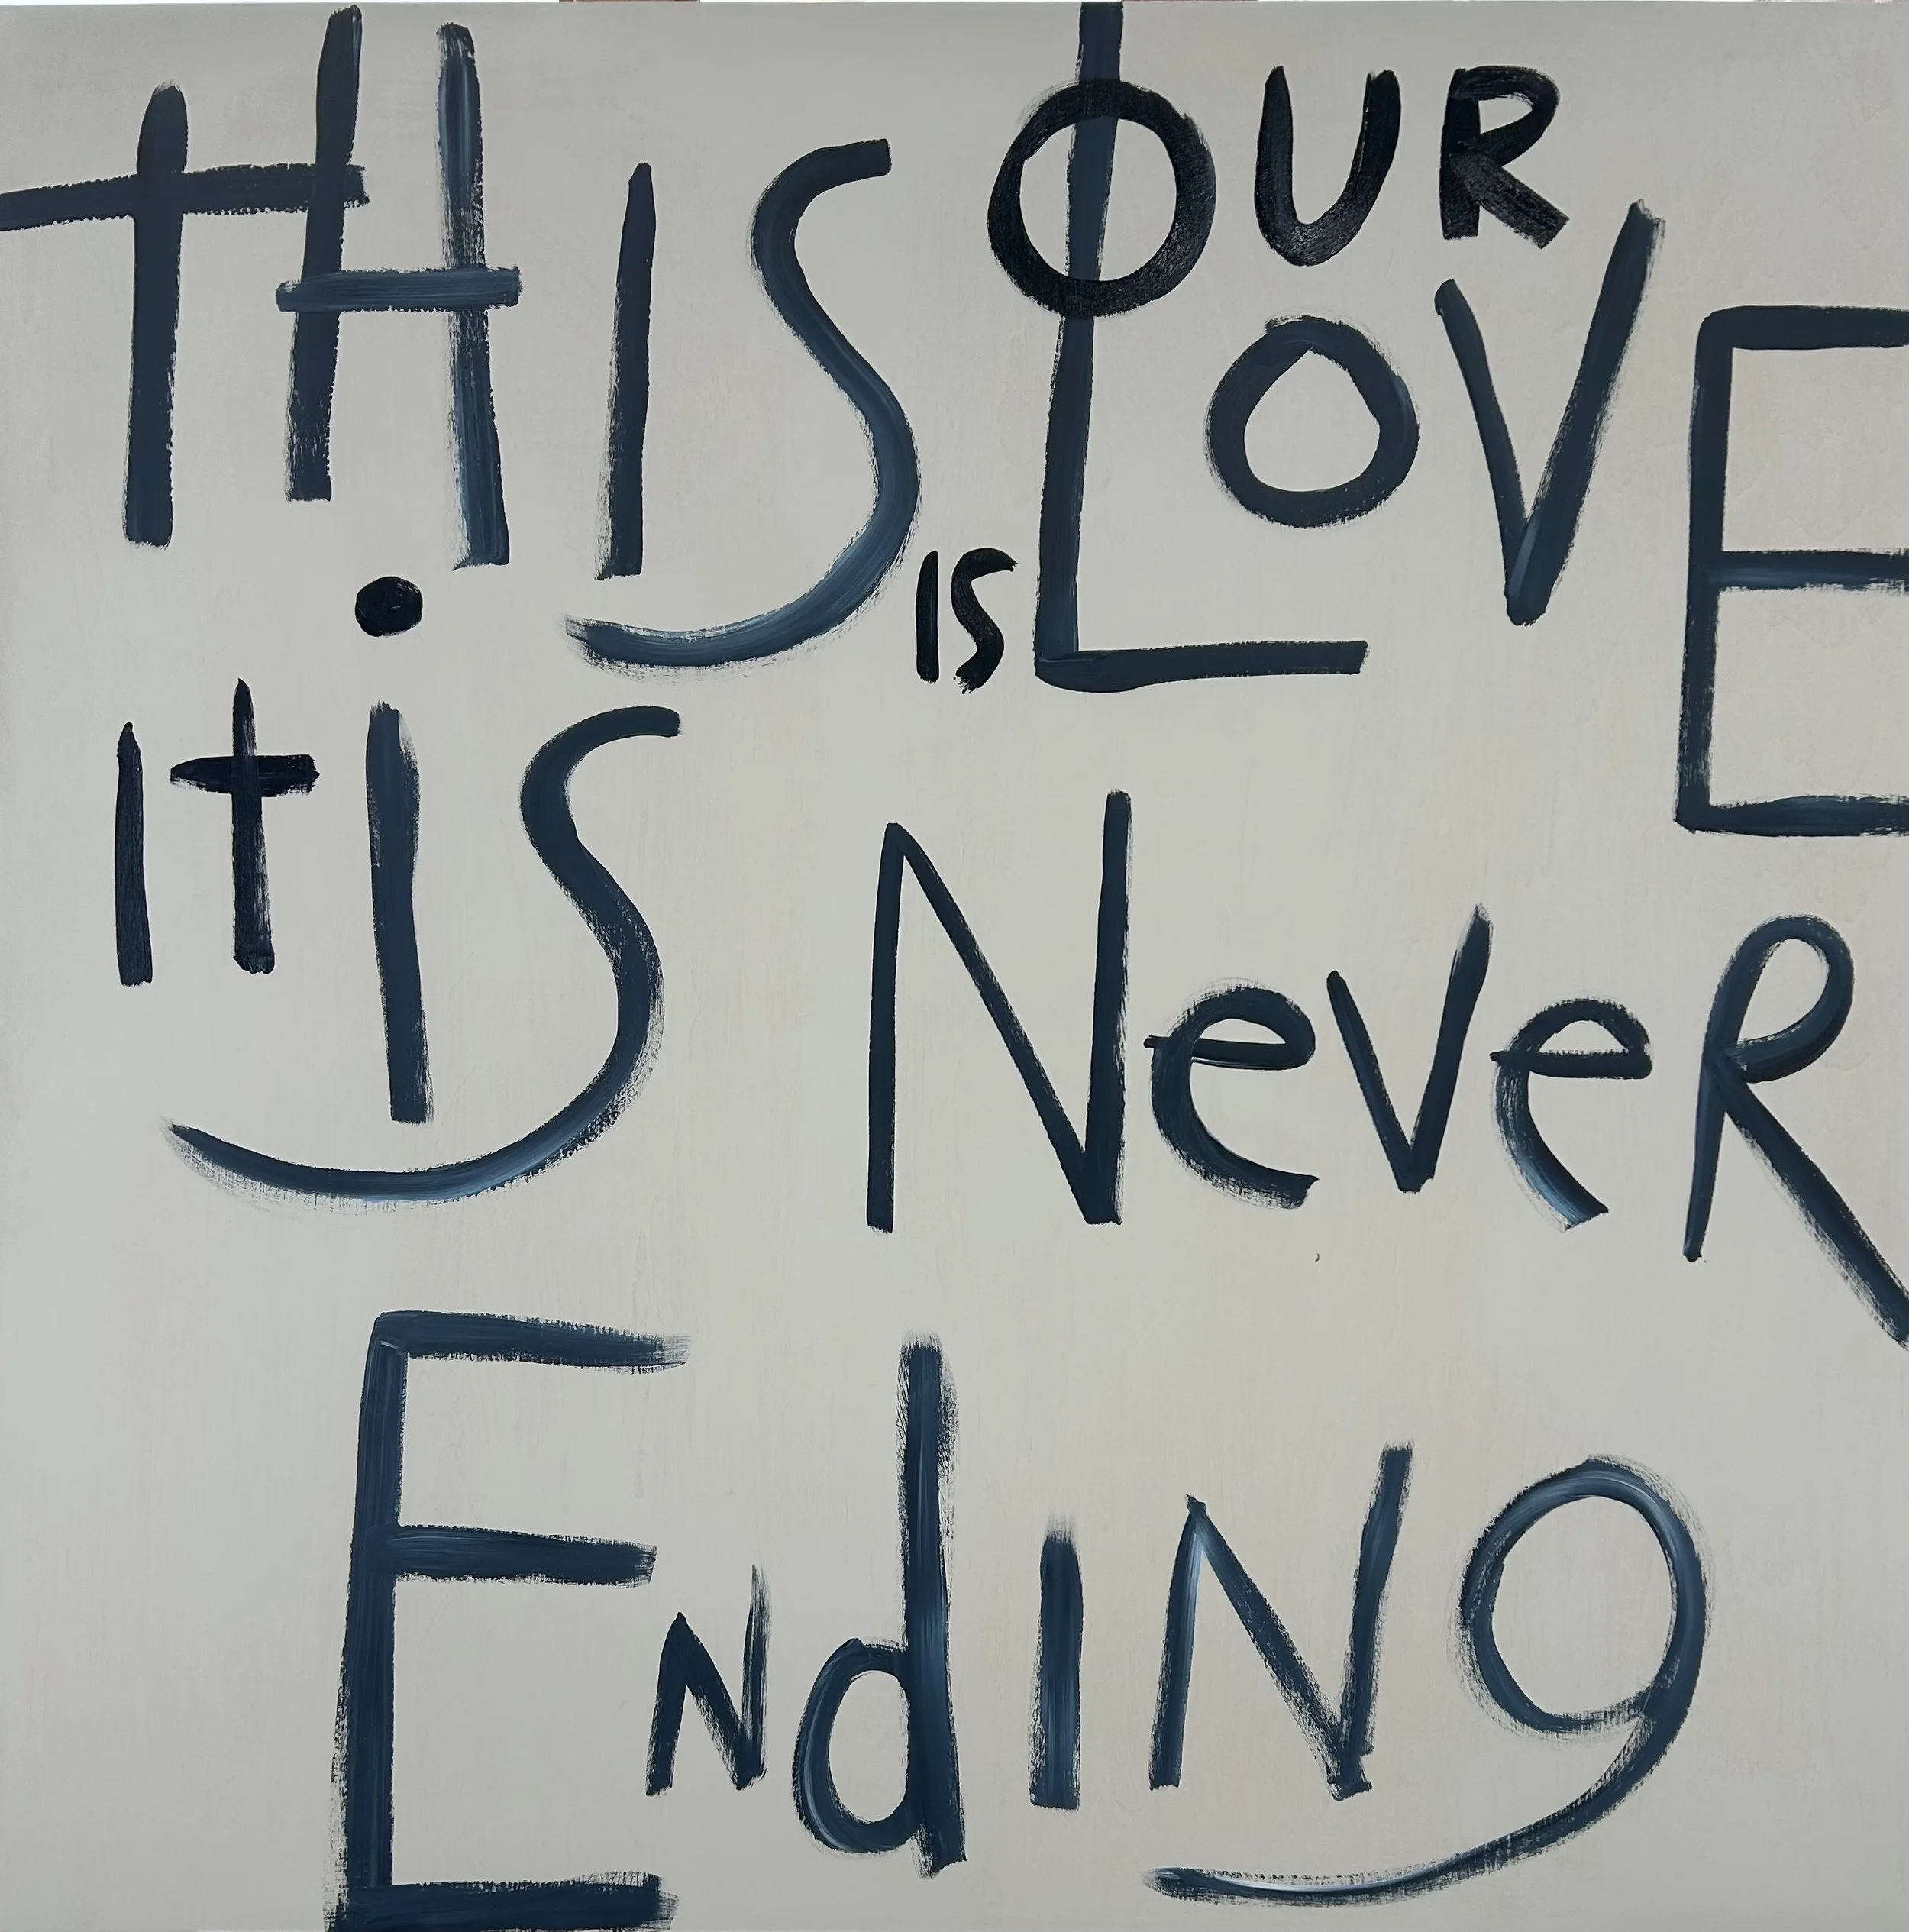 THIS is OUR LOVE
It iS NeveR
ENdING